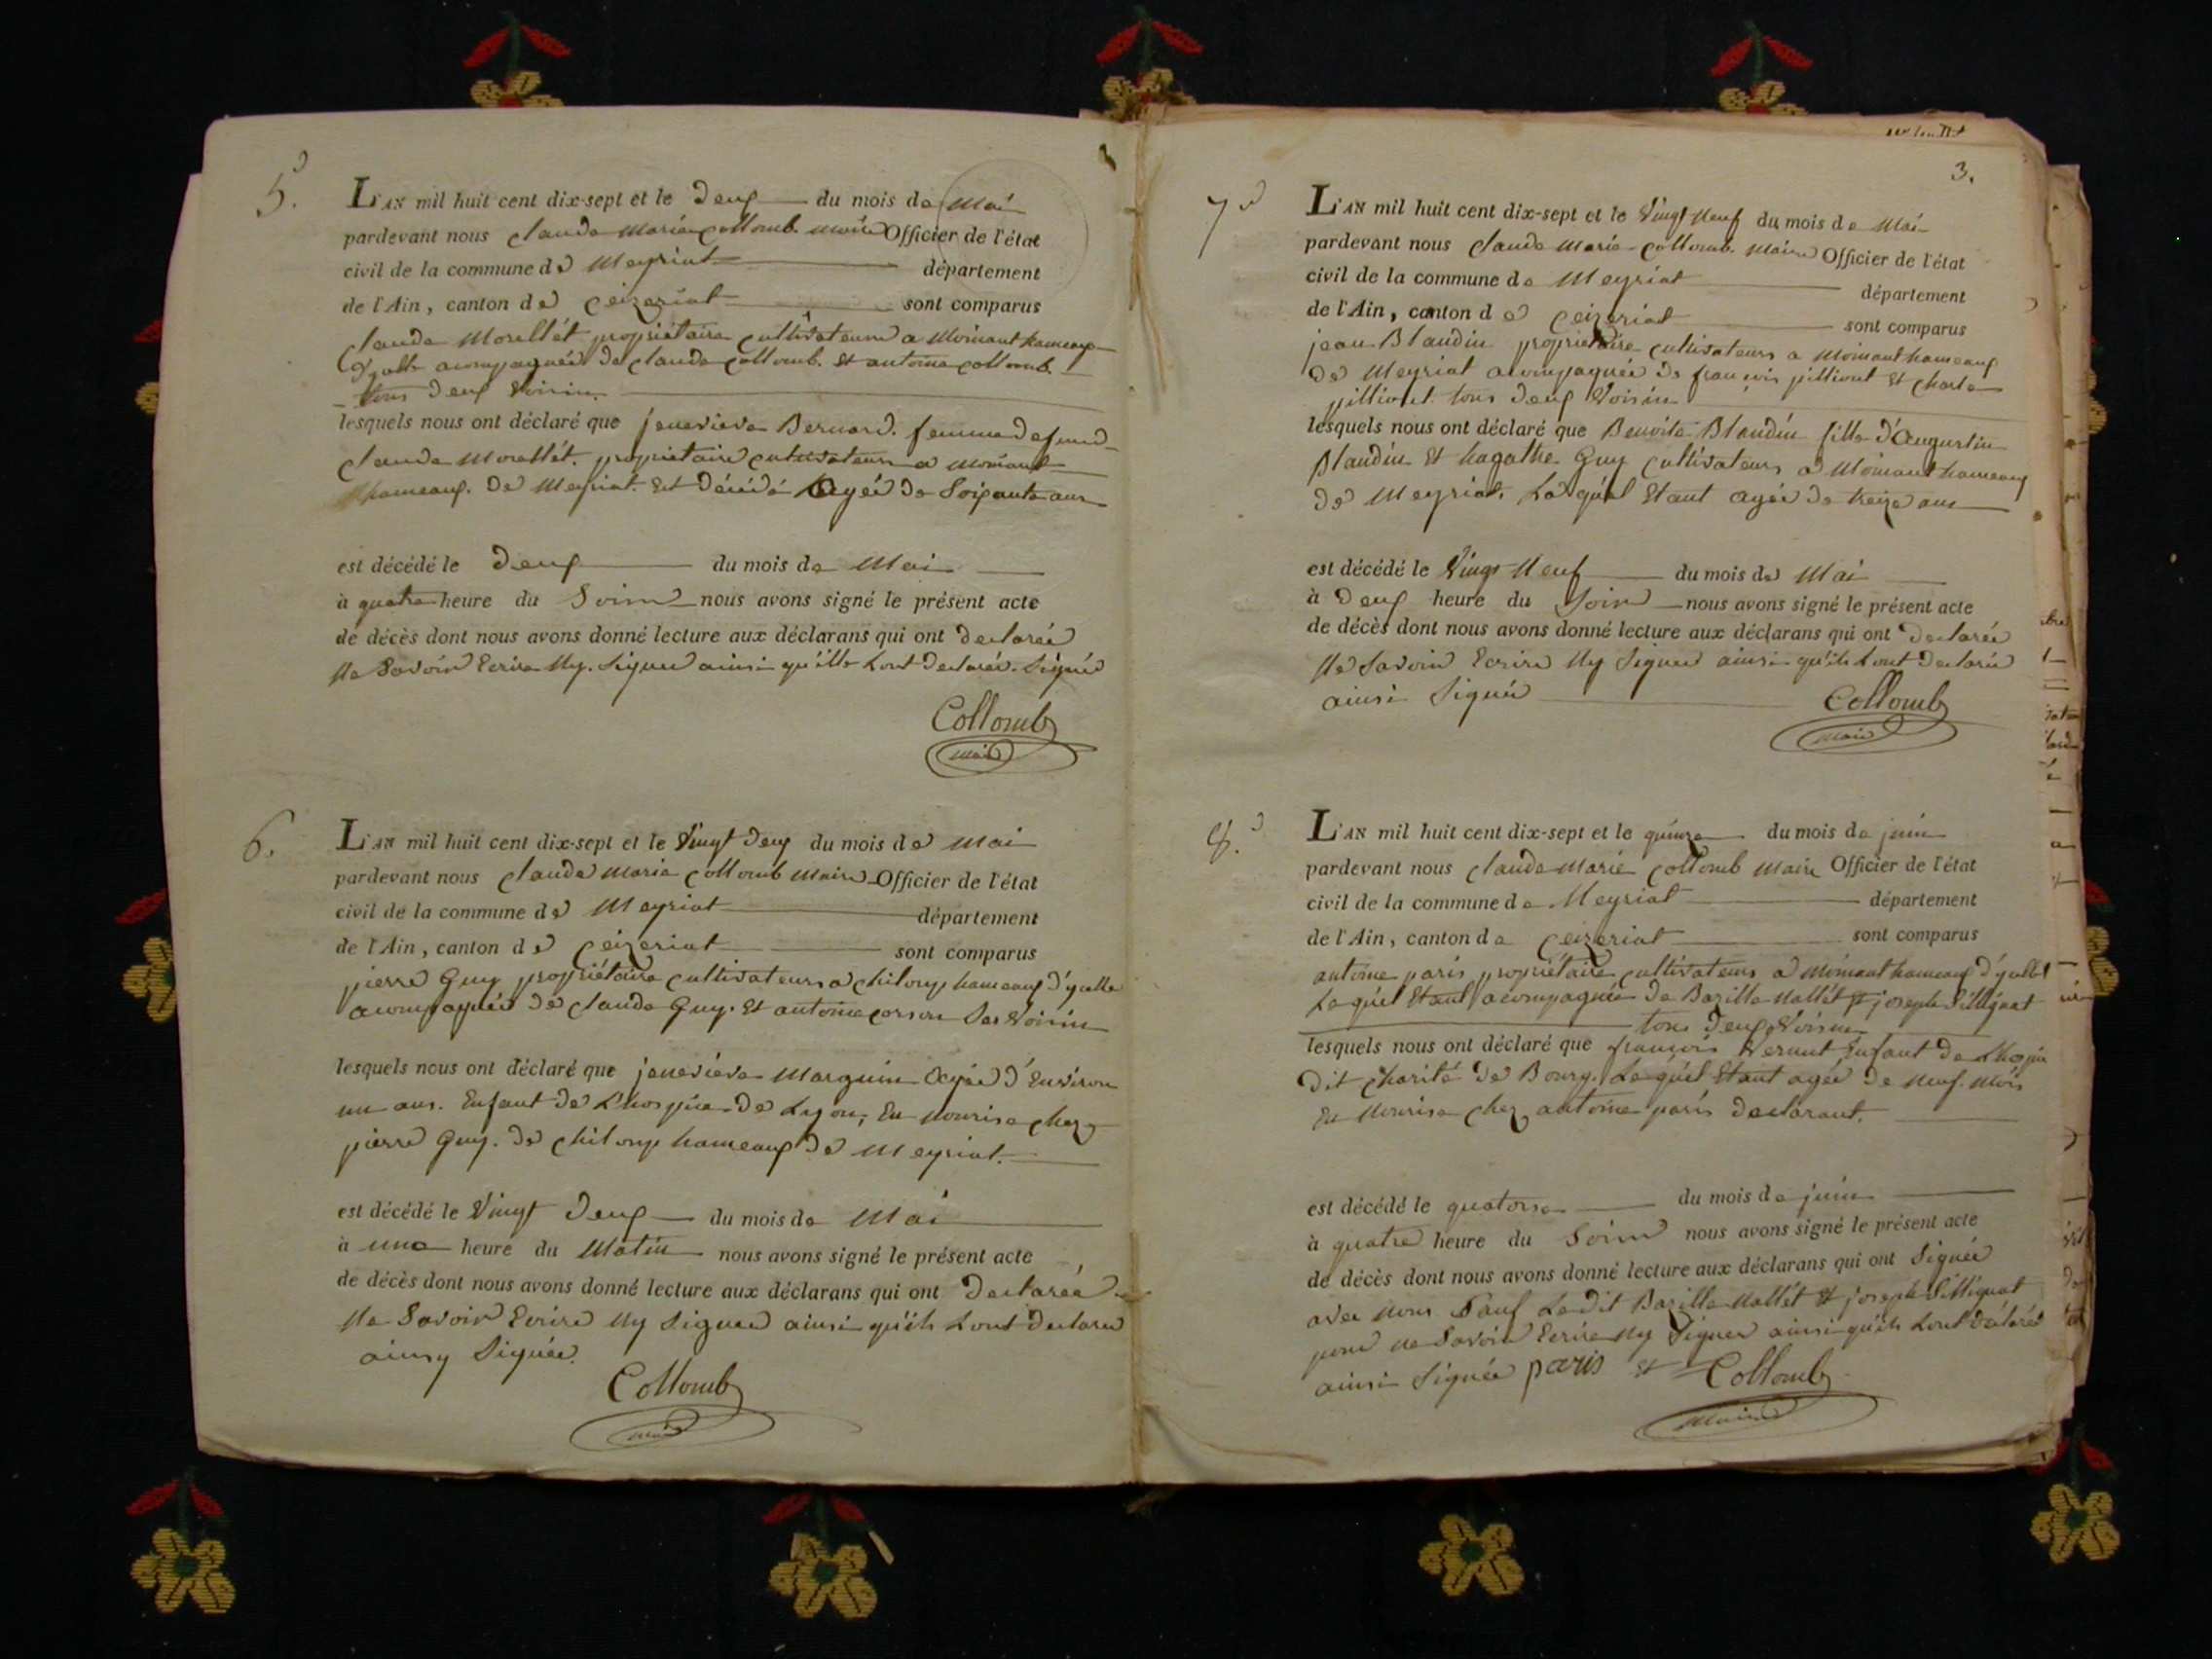 5.
L'AN mil huit cent dix-sept et le deux du mois de Mai
pardevant nous claude marie collomb. maire Officier de l'état
civil de la commune de Meyriat département
de l'Ain, canton de ceizeriat sont comparus
claude Morellét propriétaire cultivateur a Moinant hameaux
d'ycelle acompagnée de claude collomb. Et antoine collomb.
tous deux Voisin.
lesquels nous ont déclaré que jenevieve Bernard. femme de feu
claude Morellét. propriétaire cultivateur a Moinant
hameaux. de Meyriat. Est décédé Agée de Soixante ans
est décédé le deux du mois de Mai
à quatre heure du Soir nous avons signé le présent acte
de décès dont nous avons donné lecture aux déclarans qui ont declarée
Ne Savoir Ecrire Ny. Signer ainsi qu'ills Lont declarée. Signée
Collomb
maire
6.
L'AN mil huit cent dix-sept et le Vingt deux du mois de Mai
pardevant nous claude marie collomb maire Officier de l'état
civil de la commune de Meyriat département
de l'Ain, canton de ceizeriat sont comparus
pierre Guy propriétaire cultivateur a chiloup hameaux d'ycelle
acompagnée de claude Guy. Et antoine corson Ses Voisin
lesquels nous ont déclaré que jenevieve Marguin Agée d'Environ
un ans. Enfant de L'hospice de Lyon, En Nourise chez
pierre Guy. de chiloup hameaux de Meyriat.
est décédé le Vingt deux du mois de Mai
à une heure du Matin nous avons signé le présent acte
de décès dont nous avons donné lecture aux déclarans qui ont declarée
Ne Savoir Ecrire Ny Signer ainsi qu'ils Lont declaré
ainsy Signée.
Collomb
maire
3.
7
L'AN mil huit cent dix-sept et le Vingt Neuf du mois de Mai
pardevant nous claude marie collomb. maire Officier de l'état
civil de la commune de Meyriat département
de l'Ain, canton de ceizeriat sont comparus
jean Blandin propriétaire cultivateur a Moinant hameaux
de Meyriat acompagnée de françois pilliont Et charle
pilliont tous deux Voisin
lesquels nous ont déclaré que Benoite Blandin fille d'Augustin
Blandin Et hagathe Guy cultivateur a Moinant hameaux
de Meyriat. Laquel Etant agée de treize ans
est décédé le Vingt Neuf du mois de Mai
à deux heure du Soir nous avons signé le présent acte
de décès dont nous avons donné lecture aux déclarans qui ont declarée
Ne Savoir Ecrire Ny Signer ainsi qu'ils Lont declarée
ainsi Signée Collomb
maire
8.
L'AN mil huit cent dix-sept et le quinze du mois de juin
pardevant nous claude Marie collomb Maire Officier de l'état
civil de la commune de Meyriat département
de l'Ain, canton de ceizeriat sont comparus
antoine paris propriétaire cultivateur a Moinant hameaux d'ycelle
Lequel Etant acompagnée de Bazille Mallét Et joseph Sillignat
tous deux Voisin
lesquels nous ont déclaré que françois Vernut Enfant de L'hospice
dit charité de Bourg. Lequel Etant agée de Neuf Mois
En Nourise chez antoine paris declarant.
est décédé le quatorse du mois de juin
à quatre heure du Soir nous avons signé le présent acte
de décès dont nous avons donné lecture aux déclarans qui ont Signée
avec nous Sauf Ledit Bazille Mallét Et joseph Sillignat
pour ne Savoir Ecrire Ny Signer ainsi qu'ils Lont declarée
ainsi Signée paris Et Collomb
maire